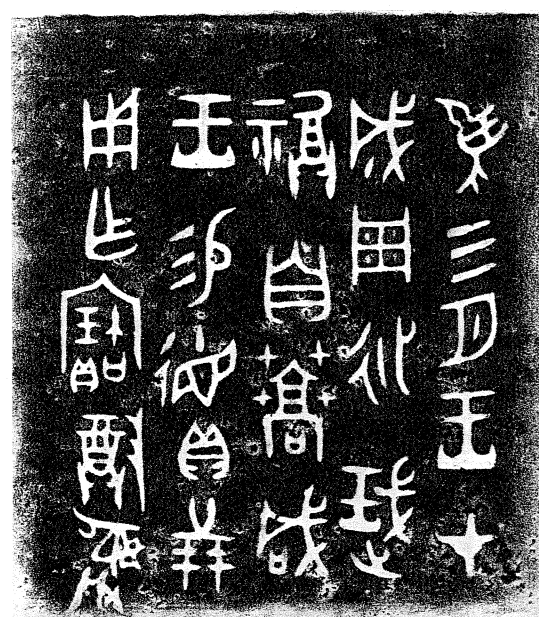 隹三月王才
成周延珷
祼自蒿咸
王易德貝廿朋
用乍寶尊彝